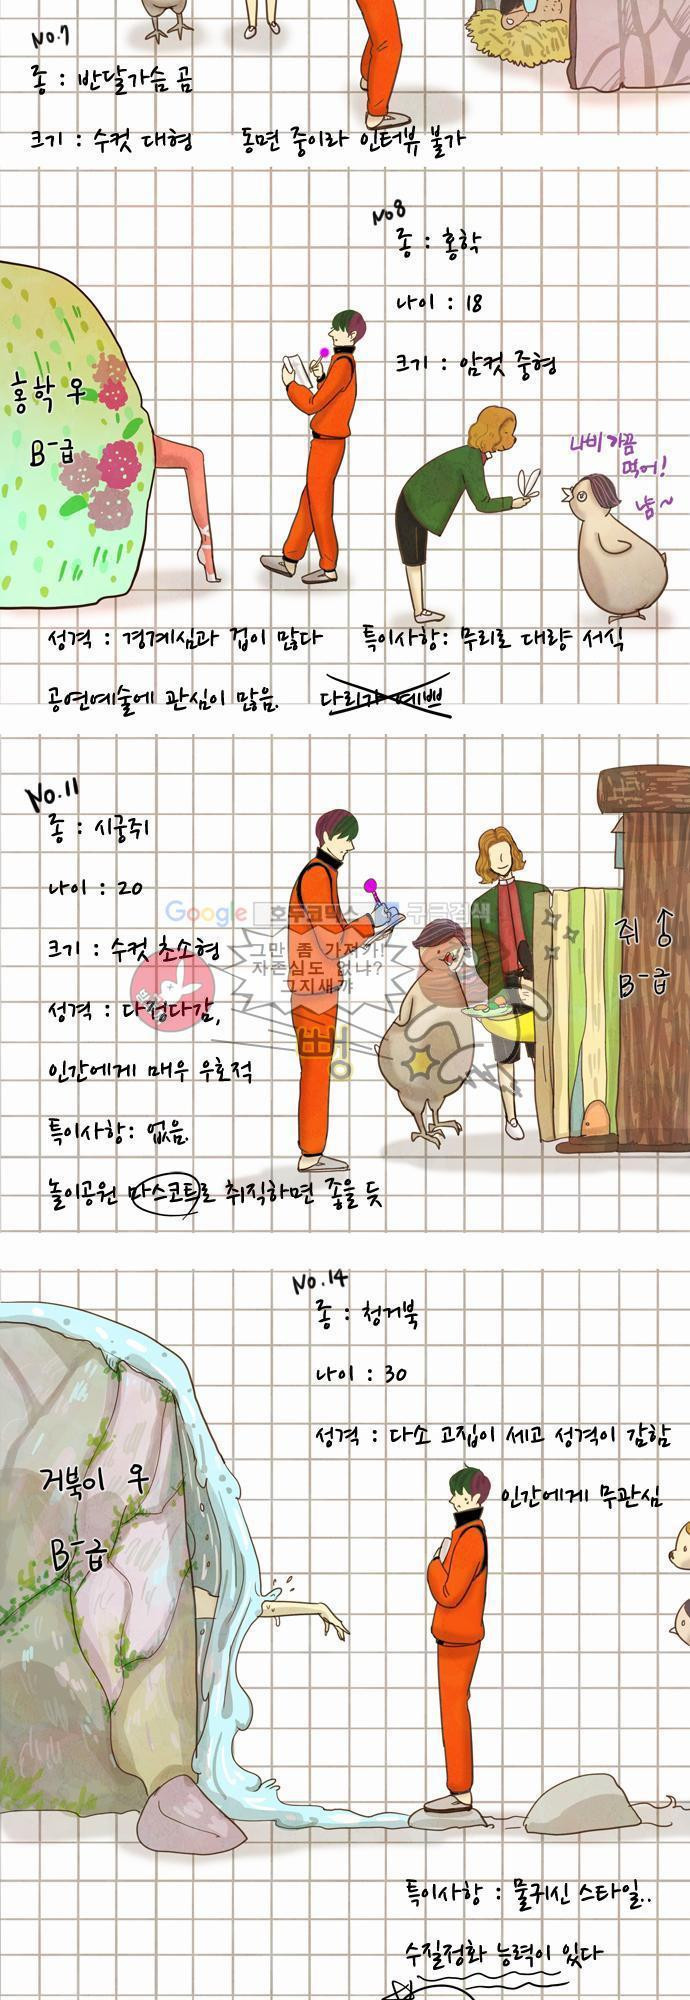 No.7
종 : 반달가슴 곰
크기 : 수컷 대형 동면 중이라 인터뷰 불가
No8
종 : 홍학
나이 : 18
크기 : 암컷 중형
홍학 우
B-급
나비 가끔
먹어!
냠~
성격 : 경계심과 겁이 많다 특이사항: 무리로 대량 서식
공연예술에 관심이 많음. 다리가 예쁘
No.11
종 : 시궁쥐
나이 : 20
Google 호두코믹스 구글검색
크기 : 수컷 초소형
그만 좀 가져가!
자존심도 없냐?
그지새꺄
뻥
쥐 우
B-급
성격 : 다정다감,
인간에게 매우 우호적
특이사항: 없음.
놀이공원 마스코트로 취직하면 좋을 듯
No.14
종 : 청거북
나이 : 30
성격 : 다소 고집이 세고 성격이 감함
인간에게 무관심
거북이 우
B-급
특이사항 : 물귀신 스타일..
수질정화 능력이 있다